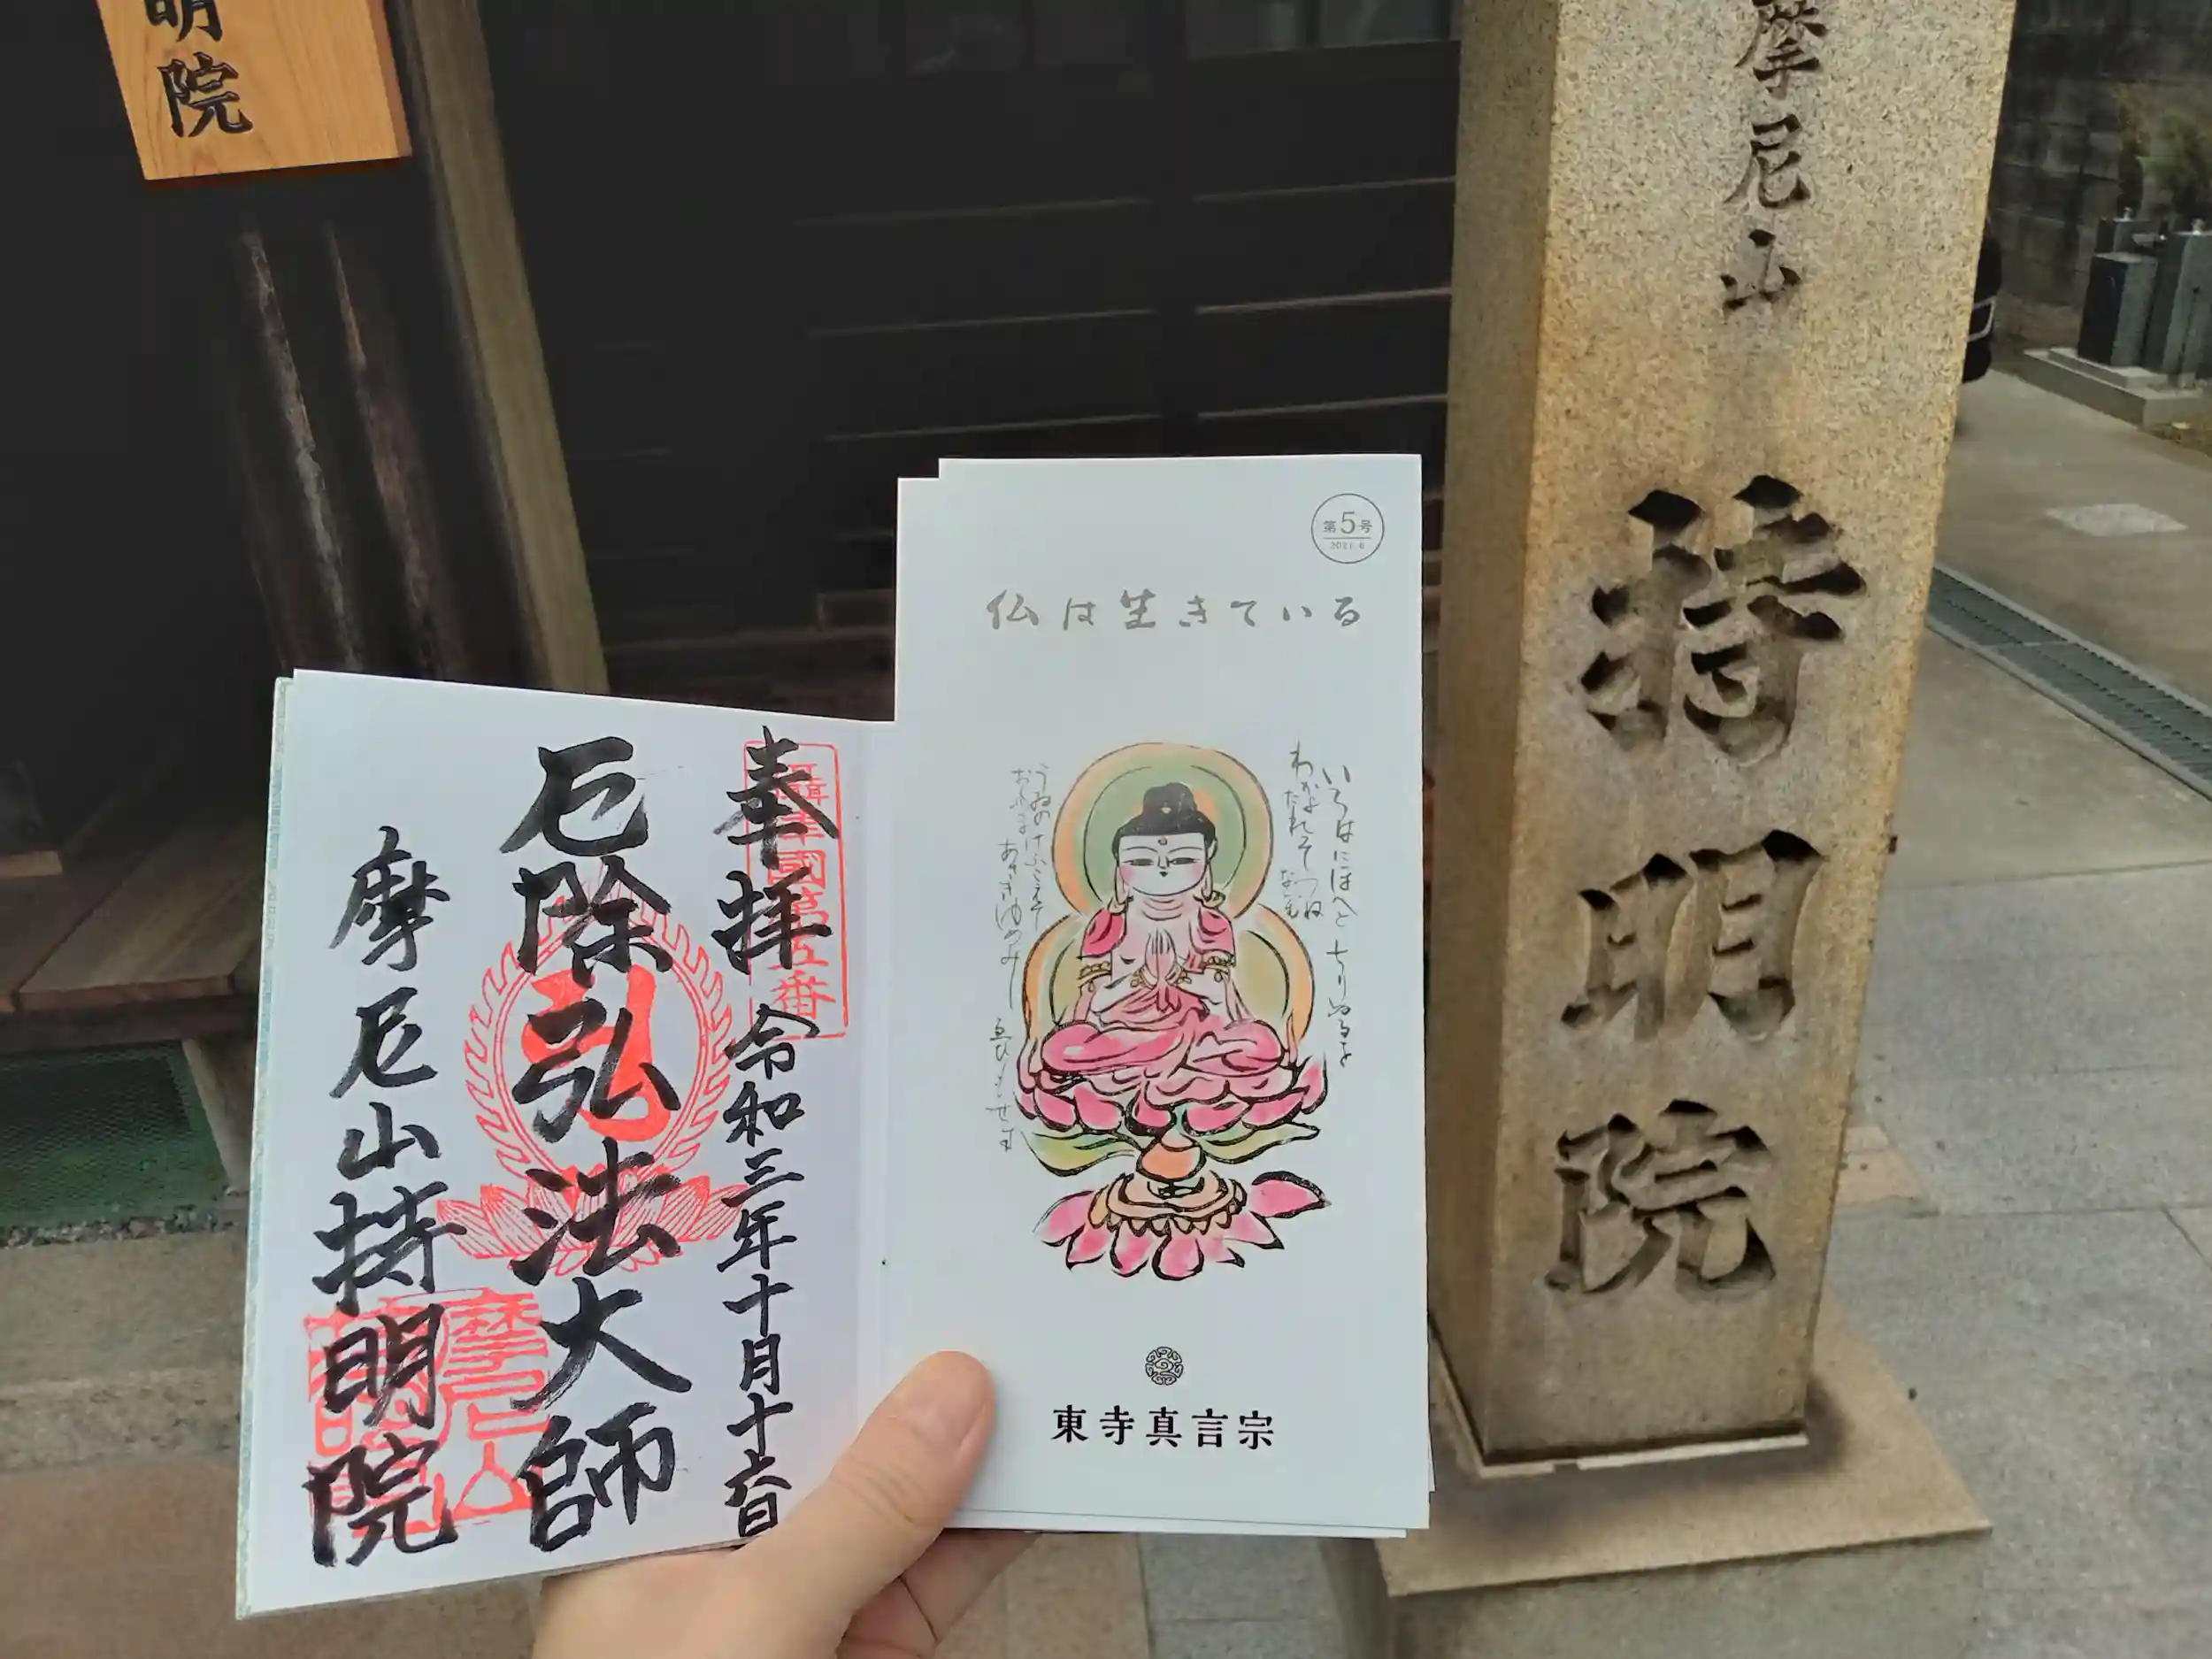 明院
摩尼山
持明院
奉拝
令和三年十月十六日
厄除弘法大師
摩尼山持明院
第5号
2021.6
仏は生きている
いろはにほへと ちりぬるを
わかよたれそ つねならむ
うゐのおくやま けふこえて
あさきゆめみし ゑひもせす
東寺真言宗